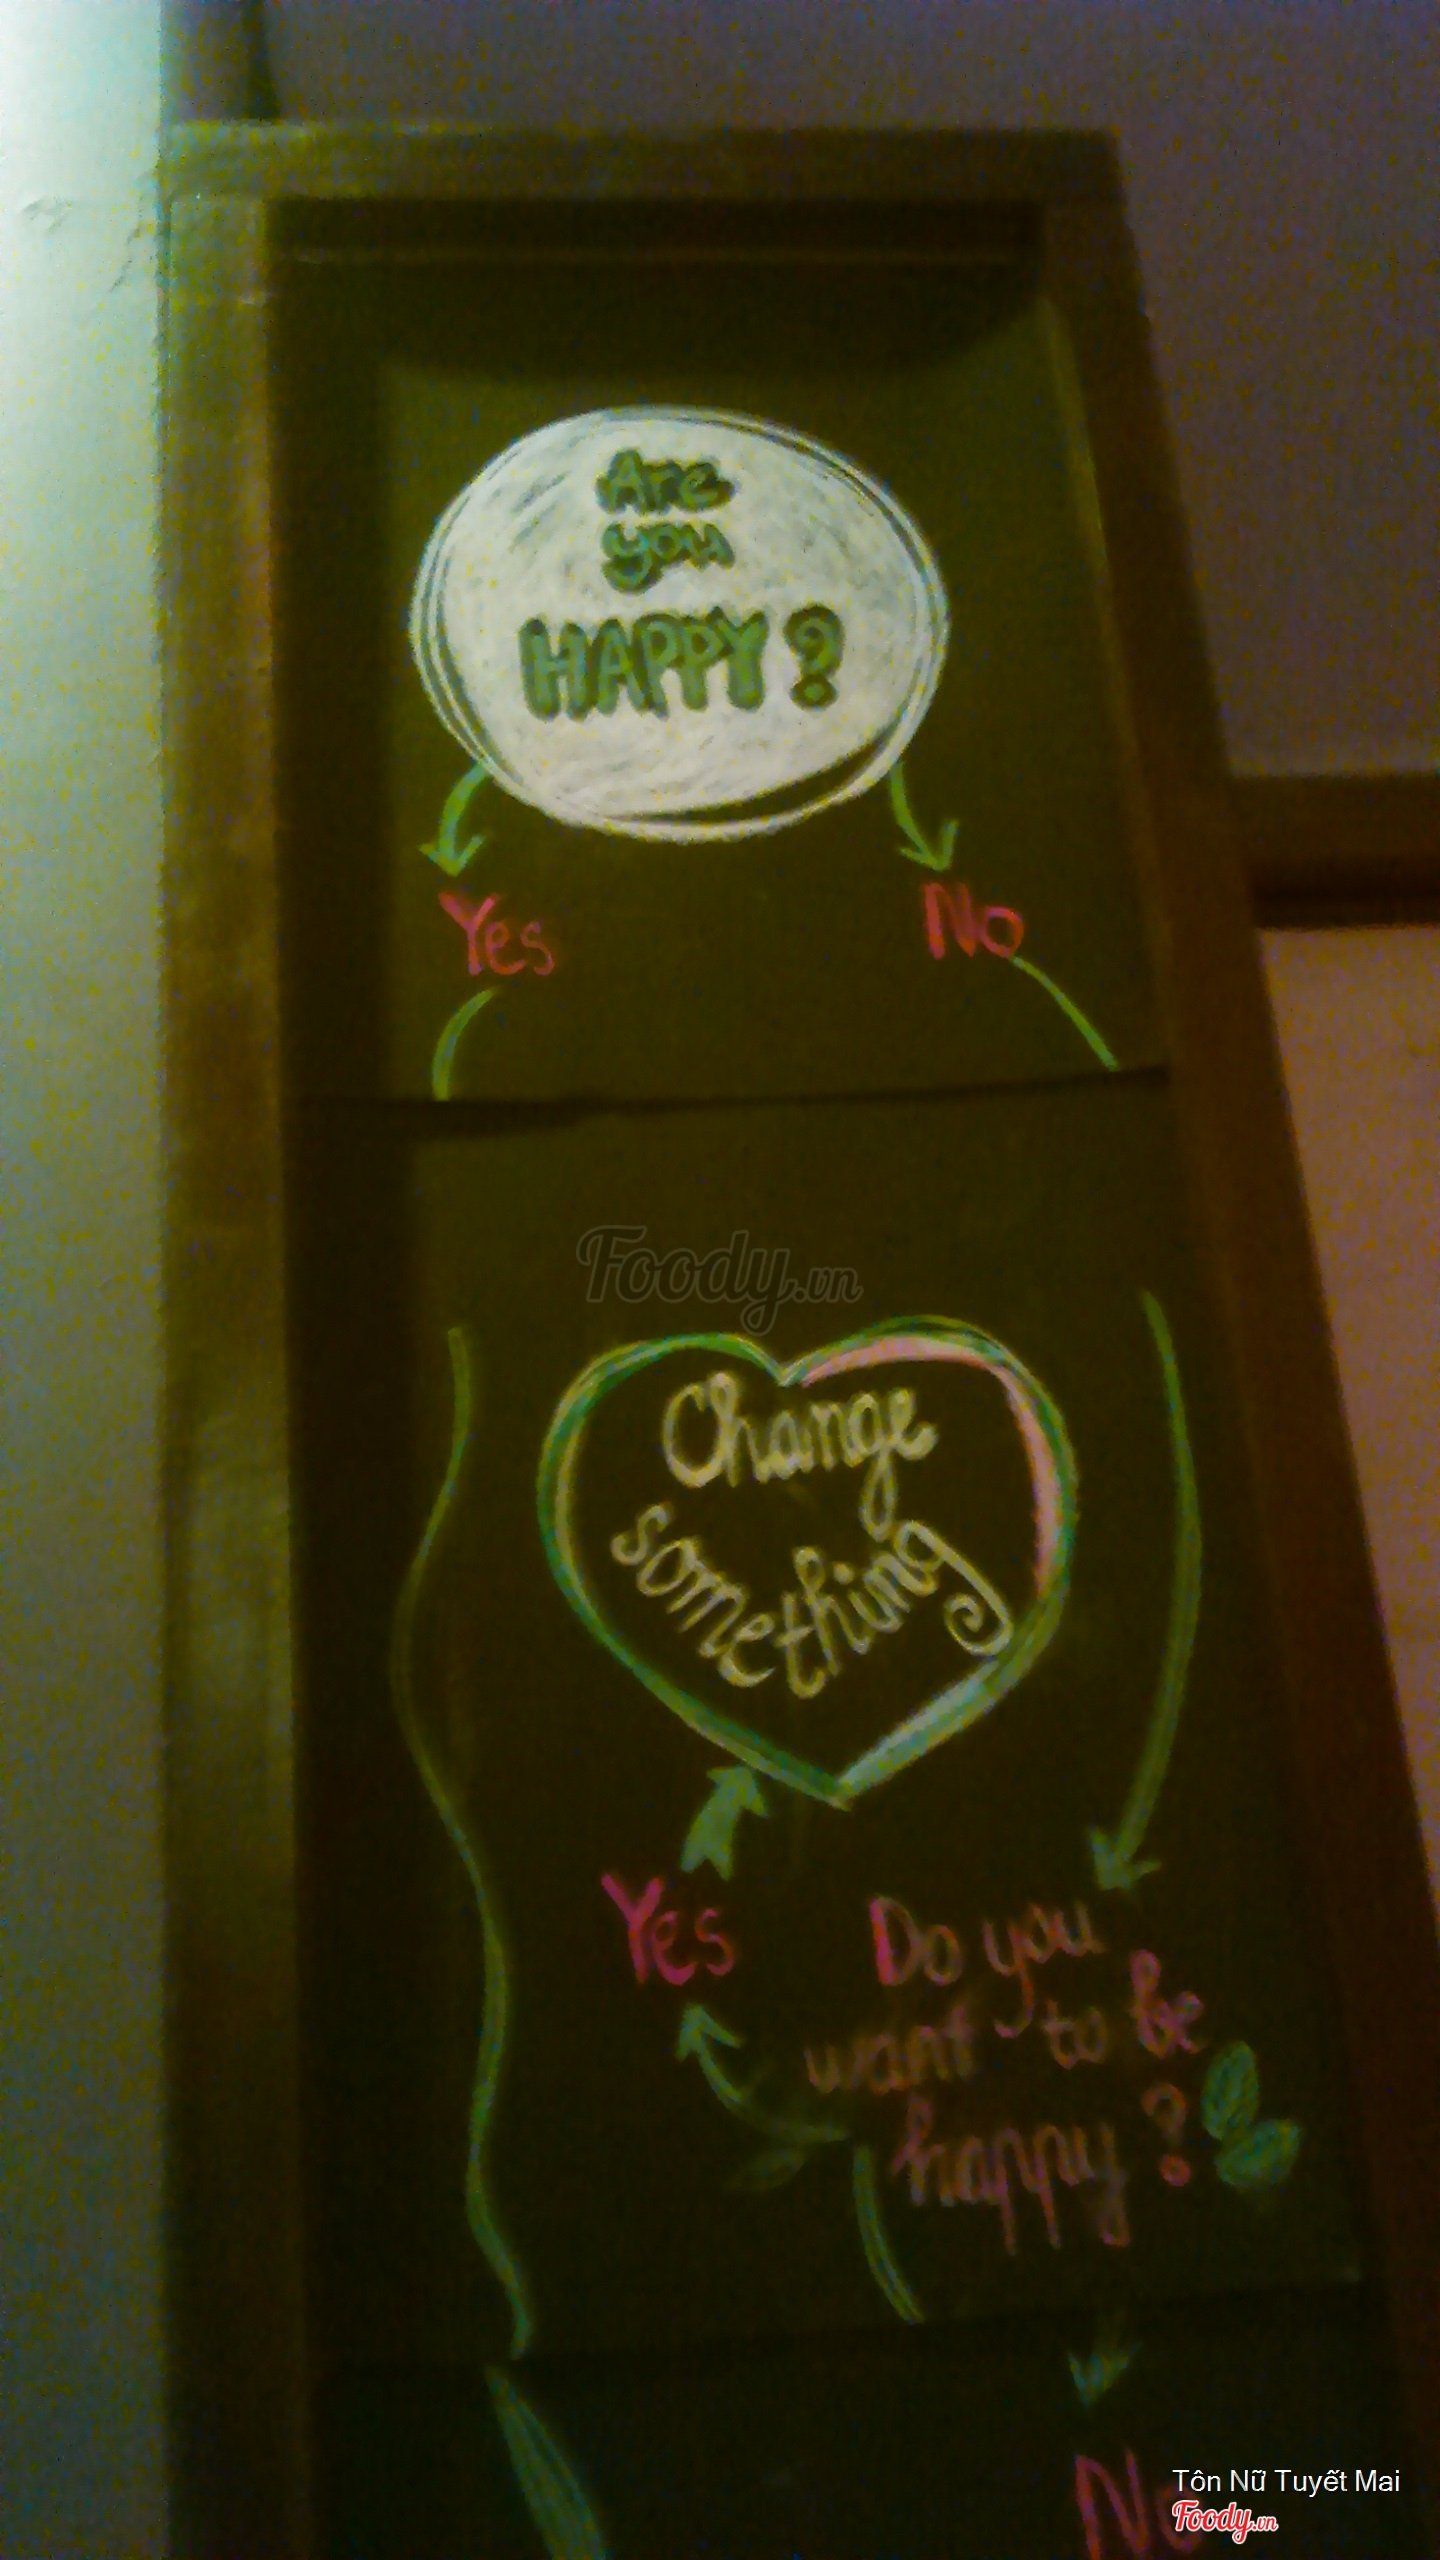 Are
you
HAPPY?
Yes
No
Foody.vn
Change
something
Yes
Do you
want to be
happy?
No
Tôn Nữ Tuyết Mai
Foody.vn